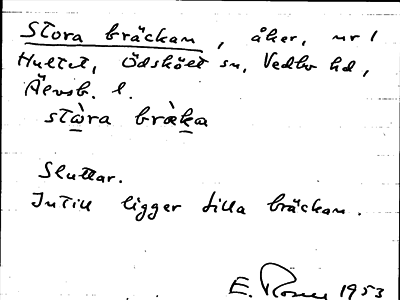 Stora bräckan, åker, nr 1
Hultet, Ödskölt sn, Vedbo hd,
Älvsb. l.
stòra bràka
Sluttar.
Intill ligger lilla bräckan.
E. 1953